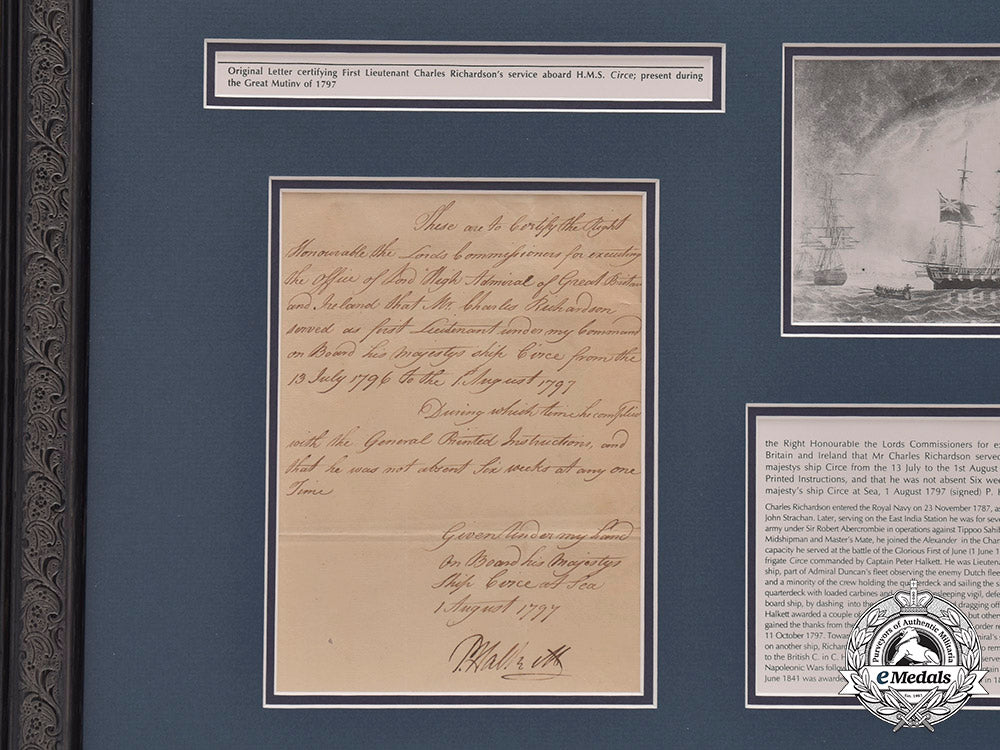 Original Letter certifying First Lieutenant Charles Richardson's service aboard H.M.S. Circe; present during
the Great Mutiny of 1797
These are to Certify the Right
Honourable the Lords Commissioners for executing
the Office of Lord High Admiral of Great Britain
and Ireland that Mr. Charles Richardson
served as first Lieutenant under my Command
on Board his Majestys ship Circe from the
13 July 1796 to the 1 August 1797
During which time he complied
with the General Printed Instructions, and
that he was not absent Six weeks at any one
Time
Given Under my hand
on Board his Majestys
ship Circe at Sea
1 August 1797
P. Halkett
the Right Honourable the Lords Commissioners for ex
Britain and Ireland that Mr Charles Richardson served
majestys ship Circe from the 13 July to the 1st August
Printed Instructions, and that he was not absent Six wee
majesty's ship Circe at Sea, 1 August 1797 (signed) P. H
Charles Richardson entered the Royal Navy on 23 November 1787, as
John Strachan. Later, serving on the East India Station he was for seve
army under Sir Robert Abercrombie in operations against Tippoo Sahib
Midshipman and Master's Mate, he joined the Alexander in the Char
capacity he served at the battle of the Glorious First of June (1 June 1
frigate Circe commanded by Captain Peter Halkett. He was Lieutena
ship, part of Admiral Duncan's fleet observing the enemy Dutch flee
and a minority of the crew holding the quarterdeck and sailing the s
quarterdeck with loaded carbines and sleeping vigil, defe
board ship, by dashing into the dragging off
Halkett awarded a couple of but other
gained the thanks from the order re
11 October 1797. Towar miral's
on another ship, Richard to rem
to the British C. in C. H
Napoleonic Wars follow
June 1841 was awarde in 18
Purveyors of Authentic Militaria
eMedals